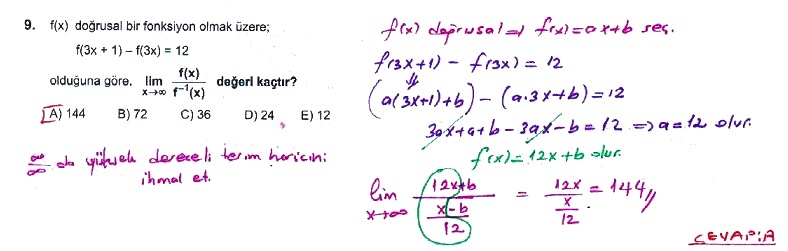 9. f(x) doğrusal bir fonksiyon olmak üzere;
f(3x + 1) – f(3x) = 12
olduğuna göre, lim x→∞ f(x) / f⁻¹(x) değeri kaçtır?
A) 144 B) 72 C) 36 D) 24 E) 12
∞/∞ da yüksek dereceli terim haricini
ihmal et.
f(x) doğrusal ⇒ f(x)=ax+b seç.
f(3x+1) – f(3x) = 12
(a(3x+1)+b) – (a.3x+b) = 12
3ax+a+b – 3ax – b = 12 ⇒ a=12 olur.
f(x)=12x+b olur.
lim x→∞ (12x+b) / ((x-b)/12) = 12x / (x/12) = 144//
CEVAP:A